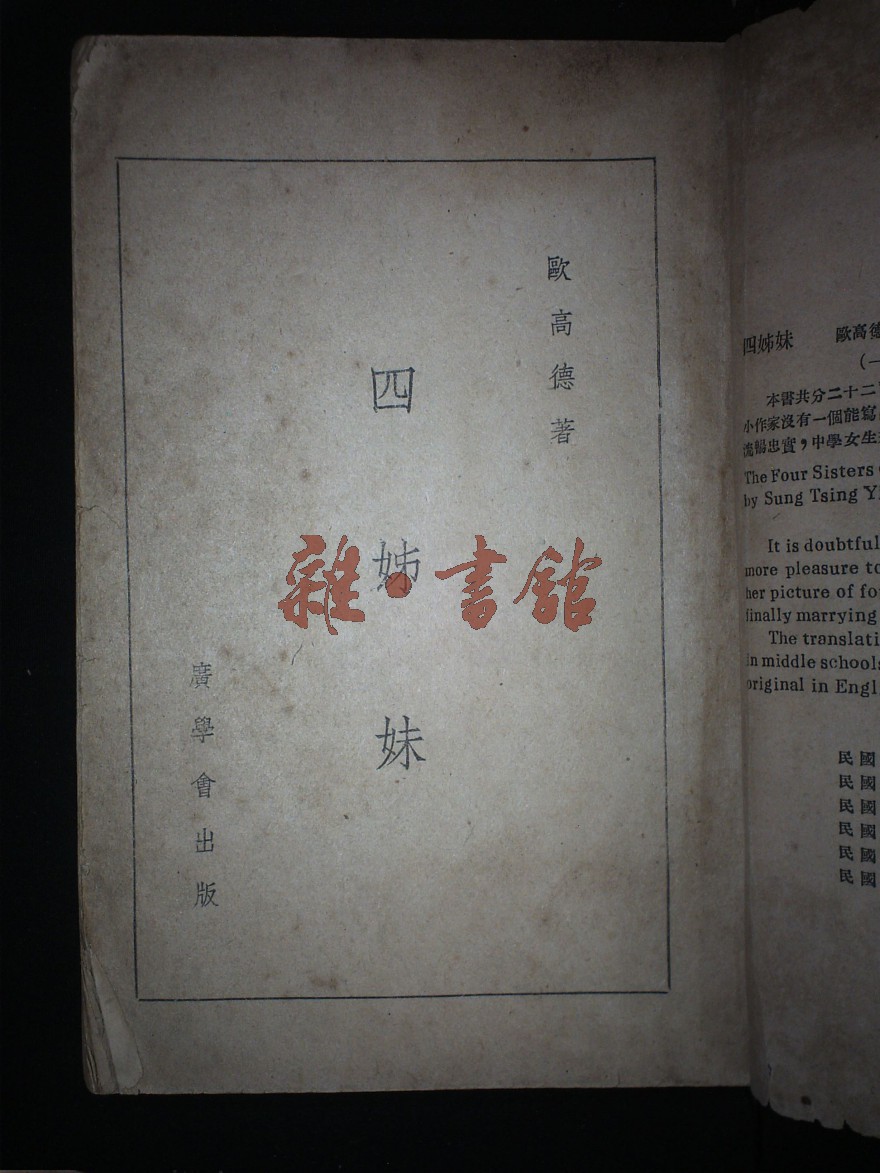 歐高德著
四姊妹
廣學會出版
雜·書館
四姊妹 歐高德
(一
本書共分二十二
小作家沒有一個能寫
流暢忠實，中學女生
The Four Sisters
by Sung Tsing Y
It is doubtful
more pleasure to
her picture of fo
finally marrying
The translati
in middle schools
original in Engl
民國
民國
民國
民國
民國
民國